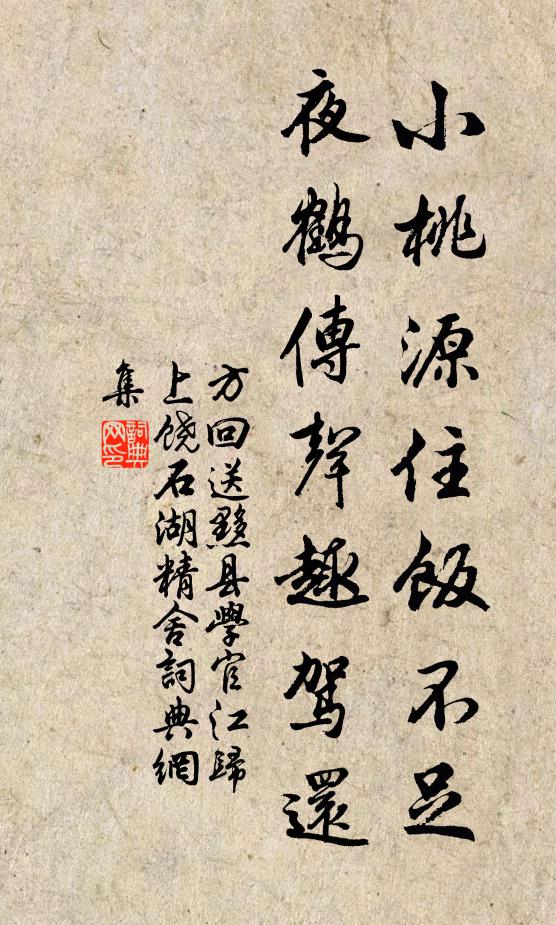 小桃源住飯不足
夜鶴傳聲趣駕還
方回送黟县學官江歸
上饒石湖精舍詞典網
集
詞典網印